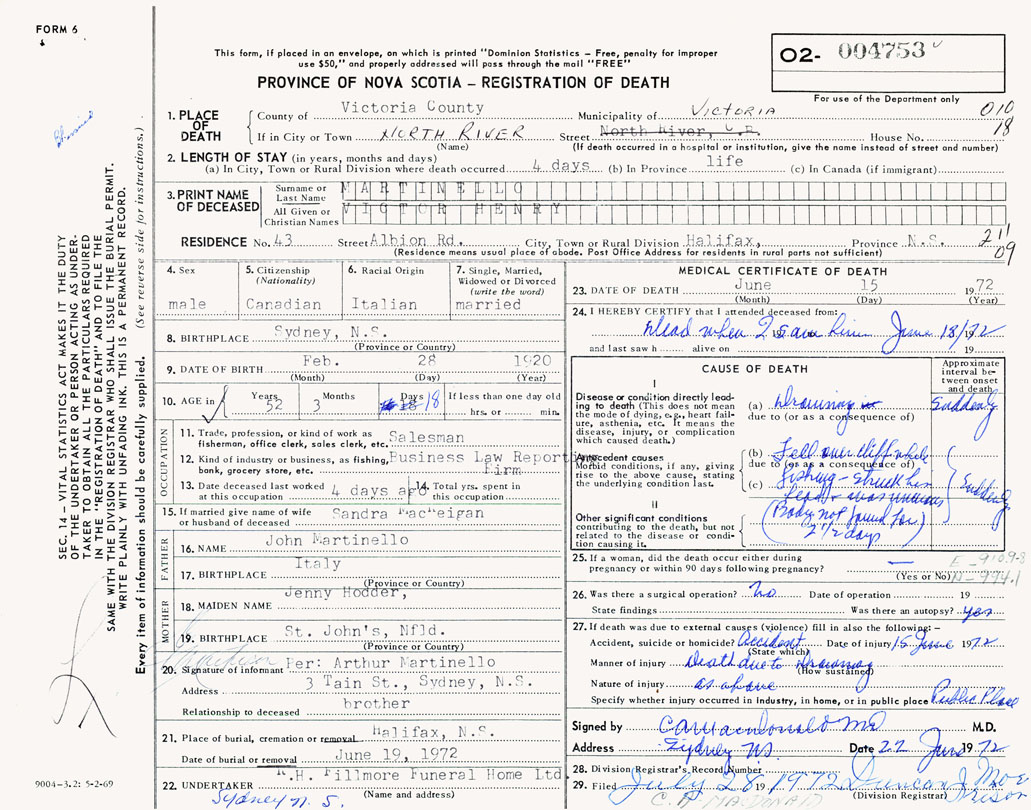 FORM 6
This form, if placed in an envelope, on which is printed "Dominion Statistics – Free, penalty for improper
use $50," and properly addressed will pass through the mail "FREE"
PROVINCE OF NOVA SCOTIA – REGISTRATION OF DEATH
02- 004753
For use of the Department only
1. PLACE OF DEATH
County of Victoria County Municipality of VICTORIA 010
If in City or Town NORTH RIVER Street North River, C.B. House No. 18
(Name) (If death occurred in a hospital or institution, give the name instead of street and number)
2. LENGTH OF STAY (in years, months and days)
(a) In City, Town or Rural Division where death occurred 4 days (b) In Province life (c) In Canada (if immigrant)
3. PRINT NAME OF DECEASED
Surname or Last Name MARTINELLO
All Given or Christian Names VICTOR HENRY
RESIDENCE No. 43 Street Albion Rd. City, Town or Rural Division Halifax, Province N.S. 211
(Residence means usual place of abode. Post Office Address for residents in rural parts not sufficient) 09
4. Sex male
5. Citizenship (Nationality) Canadian
6. Racial Origin Italian
7. Single, Married, Widowed or Divorced (write the word) married
8. BIRTHPLACE Sydney, N.S.
(Province or Country)
9. DATE OF BIRTH Feb. 28 1920
(Month) (Day) (Year)
10. AGE in Years 52 Months 3 Days 18 If less than one day old hrs. or min.
OCCUPATION
11. Trade, profession, or kind of work as fisherman, office clerk, sales clerk, etc. Salesman
12. Kind of industry or business, as fishing, bank, grocery store, etc. Business Law Reporting Firm
13. Date deceased last worked at this occupation 4 days ago
14. Total yrs. spent in this occupation
15. If married give name of wife or husband of deceased Sandra MacNeigan
FATHER
16. NAME John Martinello
17. BIRTHPLACE Italy
(Province or Country)
MOTHER
18. MAIDEN NAME Jenny Hodder,
19. BIRTHPLACE St. John's, Nfld.
(Province or Country)
20. Signature of informant Per: Arthur Martinello
Address 3 Tain St., Sydney, N.S.
Relationship to deceased brother
21. Place of burial, cremation or removal Halifax, N.S.
Date of burial or removal June 19, 1972
22. UNDERTAKER N.H. Fillmore Funeral Home Ltd.
(Name and address)
Sydney N. S.
MEDICAL CERTIFICATE OF DEATH
23. DATE OF DEATH June 15 1972
(Month) (Day) (Year)
24. I HEREBY CERTIFY that I attended deceased from:
Dead when I saw him June 18/72
and last saw h alive on 19
CAUSE OF DEATH
Approximate interval between onset and death
I
Disease or condition directly leading to death (This does not mean the mode of dying, e.g., heart failure, asthenia, etc. It means the disease, injury, or complication which caused death.)
(a) Drowning Suddenly
due to (or as a consequence of)
Antecedent causes
Morbid conditions, if any, giving rise to the above cause, stating the underlying condition last.
(b) Fell over cliff while
due to (or as a consequence of)
(c) fishing – struck his
head & was unconscious Suddenly
II
Other significant conditions
contributing to the death, but not related to the disease or condition causing it.
(Body not found for
2 1/2 days)
25. If a woman, did the death occur either during pregnancy or within 90 days following pregnancy? —
(Yes or No)
E-910.9-8
N-994.1
26. Was there a surgical operation? No Date of operation 19
State findings Was there an autopsy? yes
27. If death was due to external causes (violence) fill in also the following:–
Accident, suicide or homicide? Accident Date of injury 15 June 1972
(State which)
Manner of injury Death due to Drowning
(How sustained)
Nature of injury as above
Specify whether injury occurred in industry, in home, or in public place Public Place
Signed by M.D.
Address Sydney NS. Date 22 June 1972
28. Division Registrar's Record Number
29. Filed July 28 1972 Duncan J. Morrison
(Division Registrar)
C. A. MACDONALD
SEC. 14 – VITAL STATISTICS ACT MAKES IT THE DUTY
OF THE UNDERTAKER OR PERSON ACTING AS UNDER-
TAKER TO OBTAIN ALL THE PARTICULARS REQUIRED
IN THE "REGISTRATION OF DEATH" AND TO FILE THE
SAME WITH THE DIVISION REGISTRAR WHO SHALL ISSUE THE BURIAL PERMIT.
WRITE PLAINLY WITH UNFADING INK. THIS IS A PERMANENT RECORD.
Every item of information should be carefully supplied. (See reverse side for instructions.)
9004-3.2: 5-2-69